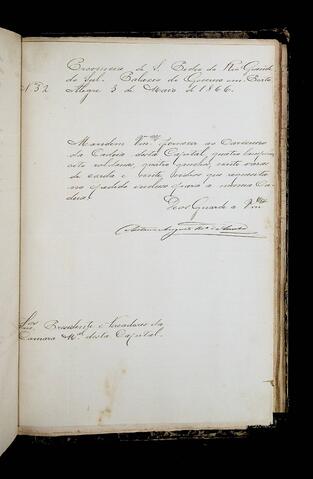 Provincia de S. Pedro do Rio Grande
do Sul. Palacio do Governo em Porto
N 32 Alegre 3 de Maio de 1866.
Mandem Vmces fornecer ao Carcereiro
da Cadeia desta Capital, quatro
oito roldanas, quatro ganchos, vinte varas
de corda e vinte que requisita
no pedido incluso para a mesma Ca-
deia.
Deos Guarde a Vmces
Snres Presidente e Vereadores da
Camara Mal desta Capital.